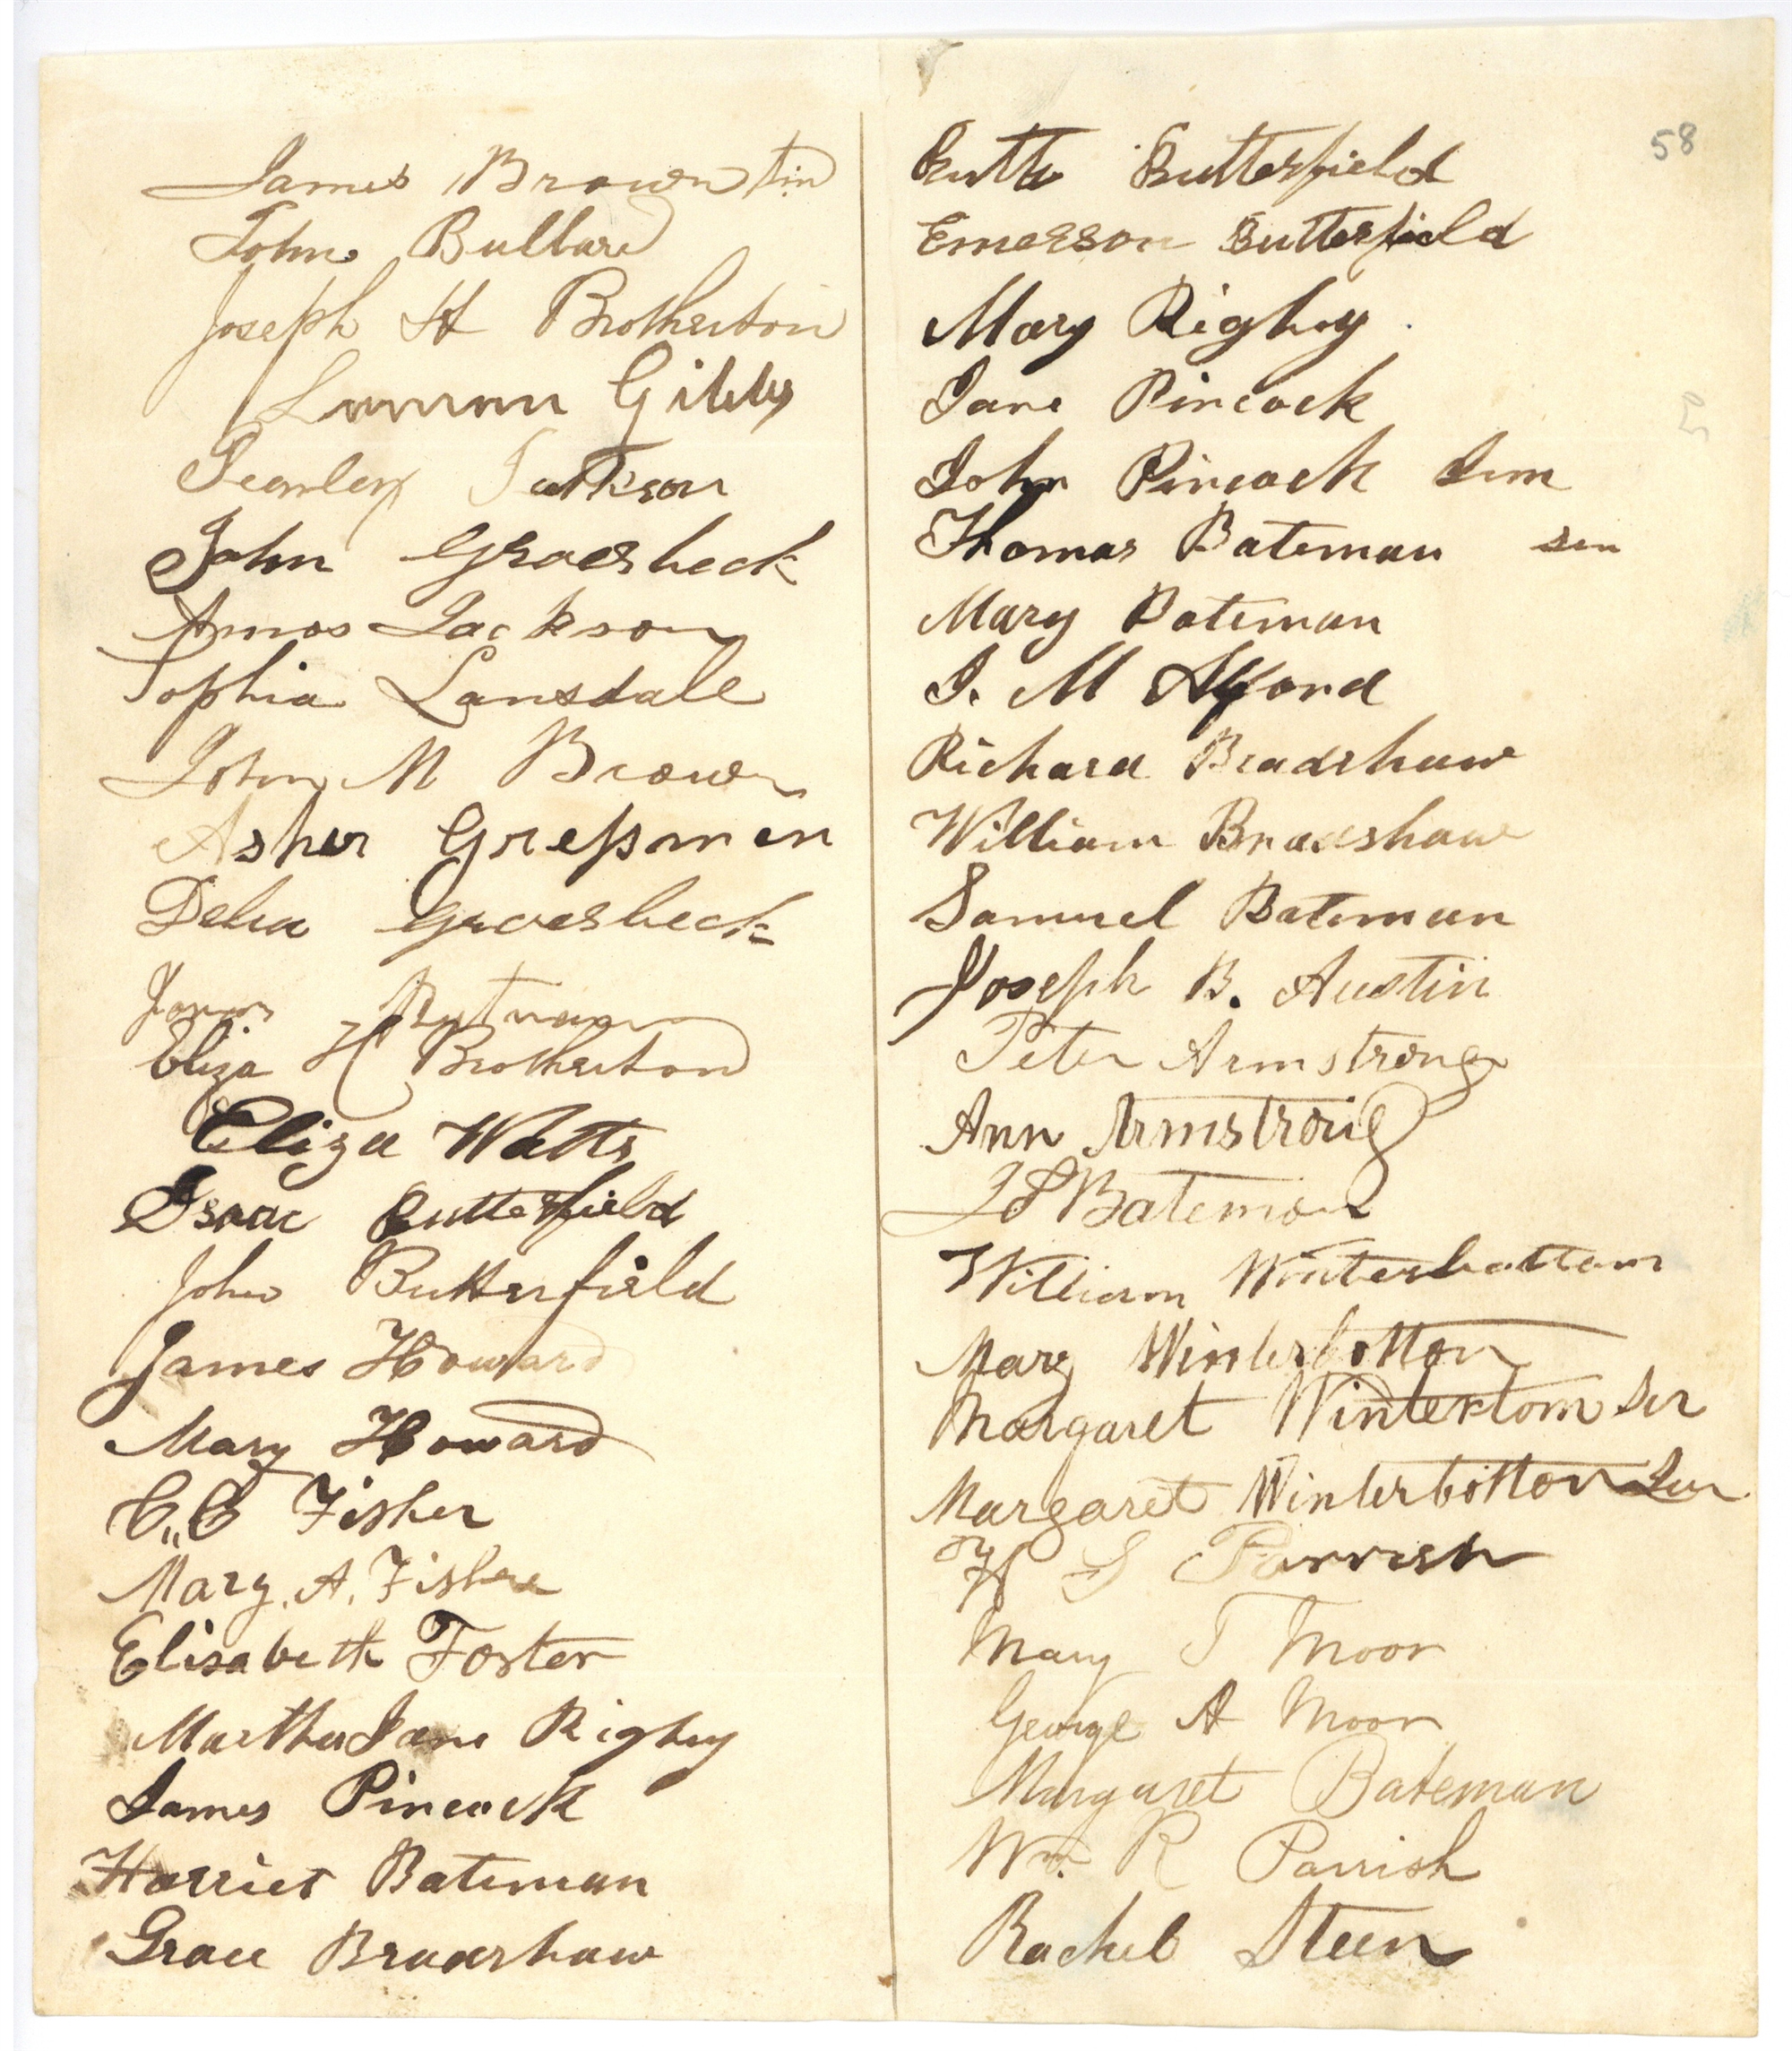 James Brown
John Bullard
Joseph H Brotherton
Gibbs
John Groesbeck
Amos Jackson
Sophia Lansdale
John M Brown
Asher Gressmen
Delia Groesbeck
Putnam
Eliza H Brotherton
Eliza Watts
Isaac Butterfield
John Butterfield
James Howard
Mary Howard
C,,C Fisher
Mary. A. Fisher
Elisabeth Foster
Martha Jane Rigby
James Pincock
Harriet Bateman
Grace Bradshaw
58
Ruth Butterfield
Emerson Butterfield
Mary Rigby.
Jane Pincock
John Pincock
Thomas Bateman sen
Mary Bateman
J. M Alford
Richard Bradshaw
William Bradshaw
Samuel Bateman
Joseph B. Austin
Peter Armstrong
Ann Armstrong
Bateman
William Winterbottom
Mary Winterbotton
Margaret Wintertom
Margaret Winterbotton
H S Parrish
Mary T Moor
George A Moor
Margaret Bateman
Wm. R Parrish
Rachel Steen